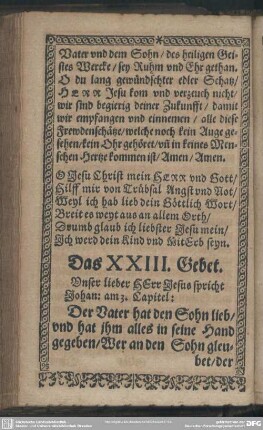 Vater vnd dem Sohn/des heiligen Gei-
stes Wercke/sey Ruhm vnd Ehr gethan.
O du lang gewündschter edler Schatz/
HERR Jesu kom vnd verzeuch nicht/
wir sind begierig deiner Zukunfft/damit
wir empfangen vnd einnemen/alle diese
Frewdenschätze/welche noch kein Auge ge-
sehen/kein Ohr gehöret/vñ in keines Men-
schen Hertze kommen ist/Amen/Amen.
O Jesu Christ mein HERR vnd Gott/
Hilff mir von Trübsal Angst vnd Not/
Weyl ich hab lieb dein Göttlich Wort/
Breit es weyt aus an allem Orth/
Drumb glaub ich liebster Jesu mein/
Ich werd dein Kind vnd MitErb seyn.
Das XXIII. Gebet.
Vnser lieber HErr Jesus spricht
Johan: am 3. Capitel:
Der Vater hat den Sohn lieb/
vnd hat ihm alles in seine Hand
gegeben/Wer an den Sohn gleu-
bet/der
DFG